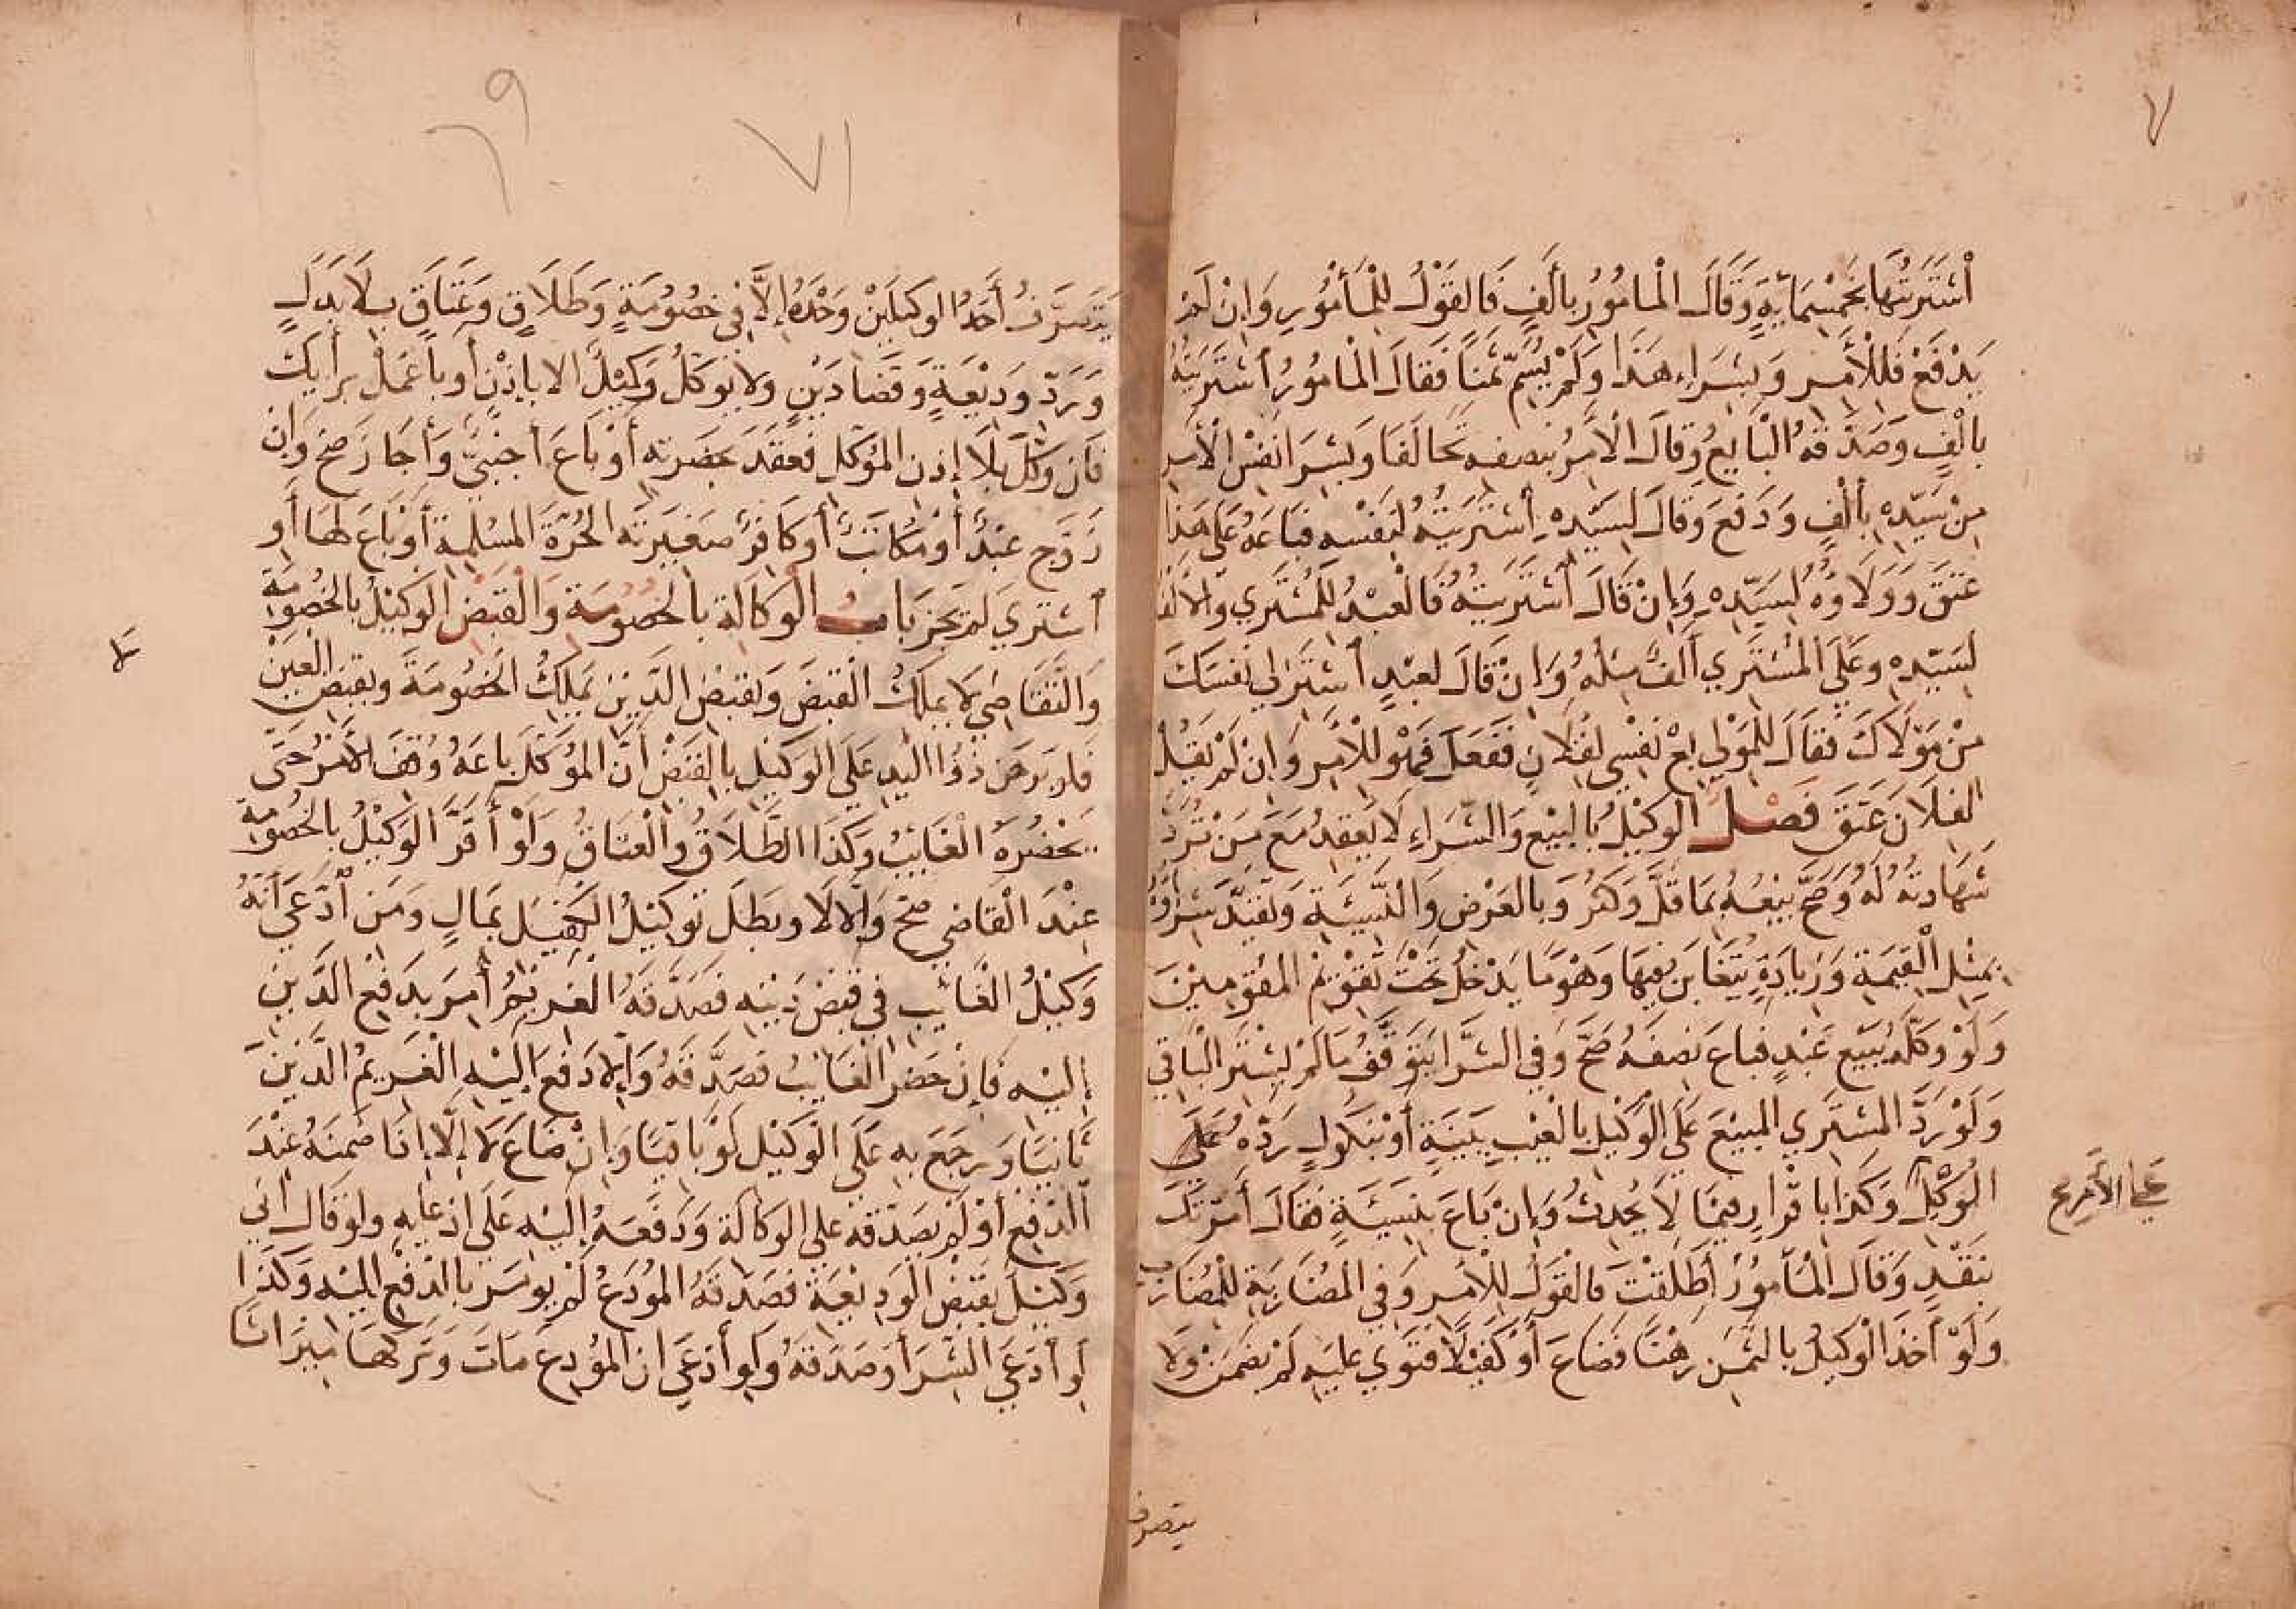 ٧
اشْتَرَيْتُهَا بِخَمْسِمِايَةٍ وَقَالَ الْمَامُوْرُ بِأَلْفٍ فَالْقَوْلُ لِلْمَأْمُوْرِ وَاِنْ لَمْ
يَدْفَعْ فَلِلْأٰمِرِ وَبِشِرَاءِ هَذَا وَلَمْ يُسَمِّ ثَمَنًا فَقَالَ الْمَامُوْرُ اشْتَرَيْتُهُ
بِالْفٍ وَصَدَّقَهُ الْبَايِعُ وَقَالَ الْاٰمِرُ بِنِصْفِهِ تَحَالَفَا وَبِشِرَا نَفْسِ الْاٰمِرِ
مِنْ سَيِّدِهِ بِأَلْفٍ وَدَفَعَ وَقَالَ لِسَيِّدِهِ اِشْتَرَيْتُهُ لِنَفْسِهِ فَبَاعَهُ عَلَى هَذَا
عَتَقَ وَوَلَاوُهُ لِسَيِّدِهِ وَاِنْ قَالَ اشْتَرَيْتُهُ فَالْعَبْدُ لِلْمُشْتَرِي وَالْاَلْفُ
لِسَيِّدِهِ وَعَلَى الْمُشْتَرِي أَلْفٌ مِثْلُهُ وَاِنْ قَالَ لِعَبْدٍ اشْتَرْ لِي نَفْسَكَ
مِنْ مَوْلَاكَ فَقَالَ لِلْمَوْلَى بِعْ نَفْسِي لِفُلَانٍ فَفَعَلَ فَهُوَ لِلْاٰمِرِ وَاِنْ لَمْ يَقُلْ
لفلَانٍ عَتَقَ فَصْلٌ الْوَكِيْلُ بِالْبَيْعِ وَالشِّرَاءِ لَا يَعْقِدُ مَعَ مَنْ تُرَدُّ
شَهَادَتُهُ لَهُ وَصَحَّ بَيْعُهُ بِمَا قَلَّ وَكَثُرَ وَبِالْعَرْضِ وَالنَّسِيْئَةِ وَتَقَيَّدَ شِرَاؤُهُ
بِمِثْلِ الْقِيْمَةِ وَزِيَادَةٍ يُتَغَابَنُ فِيْهَا وَهُوَ مَا يَدْخُلُ تَحْتَ تَقْوِيْمِ الْمُقَوِّمِيْنَ
وَلَوْ وَكَّلَهُ بِبَيْعِ عَبْدٍ فَبَاعَ نِصْفَهُ صَحَّ وَفِي الشِّرَا يَتَوَقَّفُ مَا لَمْ يَشْتَرِ الْبَاقِي
وَلَوْ رَدَّ الْمُشْتَرِي الْمَبِيْعَ عَلَى الْوَكِيْلِ بِالْعَيْبِ بِبَيِّنَةٍ أَوْ بِنُكُوْلٍ رَدَّهُ عَلَى
الْمُوَكِّلِ وَكَذَا بِاِقْرَارٍ فِيْمَا لَا يَحْدُثُ وَاِنْ بَاعَ بِنَسِيْئَةٍ فَقَالَ أَمَرْتُكَ
على الأمر صح
بِنَقْدٍ وَقَالَ الْمَأْمُوْرُ أَطْلَقْتَ فَالْقَوْلُ لِلْاٰمِرِ وَفِي الْمُضَارَبَةِ لِلْمُضَارِبِ
وَلَوْ أَخَذَ الْوَكِيْلُ بِالثَّمَنِ رَهْنًا فَضَاعَ أَوْ كَفِيْلًا فَتَوِيَ عَلَيْهِ لَمْ يَضْمَنْ وَلَا
يتصرف
٧١
٦٩
يَتَصَرَّفُ أَحَدُ الْوَكِيْلَيْنِ وَحْدَهُ اِلَّا فِي خُصُوْمَةٍ وَطَلَاقٍ وَعَتَاقٍ بِلَا بَدَلٍ
وَرَدِّ وَدِيْعَةٍ وَقَضَا دَيْنٍ وَلَا يُوَكِّلُ وَكِيْلٌ الا بِاِذْنٍ أَوِ بِاعْمَلْ بِرَأْيِكَ
فَاِنْ وَكَّلَ بِلَا اِذْنِ الْمُوَكِّلِ فَعَقَدَ بِحَضْرَتِهِ أَوْ بَاعَ أَجْنَبِيٌّ وَأَجَازَ صَحَّ وَاِنْ
زَوَّجَ عَبْدٌ أَوْ مُكَاتَبٌ أَوْ كَافِرٌ صَغِيْرَتَهُ الْحُرَّةَ الْمُسْلِمَةَ أَوْ بَاعَ لَهَا أَوِ
اشْتَرَى لَمْ يَجُزْ بَابُ الْوَكَالَةِ بِالْخُصُوْمَةِ وَالْقَبْضِ الْوَكِيْلُ بِالْخُصُوْمَةِ
وَالتَّقَاضِي لَا يَمْلِكُ الْقَبْضَ وَبِقَبْضِ الدَّيْنِ يَمْلِكُ الْخُصُوْمَةَ وَبِقَبْضِ الْعَيْنِ
لا
فَلَو بَرهَنَ ذُوْ الْيَدِ عَلَى الْوَكِيْلِ بِالْقَبْضِ أَنَّ الْمُوَكِّلَ بَاعَهُ وُقِفَ الْاَمْرُ حَتَّى
يَحْضُرَهُ الْغَائِبُ وَكَذَا الطَّلَاقُ وَالْعَتَاقُ وَلَوْ أَقَرَّ الْوَكِيْلُ بِالْخُصُوْمَةِ
عِنْدَ الْقَاضِي صَحَّ وَاِلَّا لَا وَبَطَلَ تَوْكِيْلُ الْكَفِيْلِ بِمَالٍ وَمَنِ ادَّعَى أَنَّهُ
وَكِيْلُ الْغَائِبِ فِي قَبْضِ دَيْنِهِ فَصَدَّقَهُ الْغَرِيْمُ أُمِرَ بِدَفْعِ الدَّيْنِ
اِلَيْهِ فَاِنْ حَضَرَ الْغَائِبُ فَصَدَّقَهُ وَاِلَّا دَفَعَ اِلَيْهِ الْغَرِيْمُ الدَّيْنَ
ثَانِيًا وَرَجَعَ بِهِ عَلَى الْوَكِيْلِ لَوْ بَاقِيًا وَاِنْ ضَاعَ لَا اِلَّا اِذَا ضَمِنَهُ عِنْدَ
الدَّفْعِ أَوْ لَمْ يُصَدِّقْهُ عَلَى الْوَكَالَةِ وَدَفَعَهُ اِلَيْهِ عَلَى ادِّعَايِهِ وَلَوْ قَالَ اِنِّي
وَكِيْلٌ بِقَبْضِ الْوَدِيْعَةِ فَصَدَّقَهُ الْمُوْدَعُ لَمْ يُوْمَرْ بِالدَّفْعِ اِلَيْهِ وَكَذَا
لَوِ أدَّعَى الشِّرَا وَصَدَّقَهُ وَلَوِ أدَّعَى اَنَّ الْمُوْدِعَ مَاتَ وَتَرَكَهَا مِيْرَاثًا